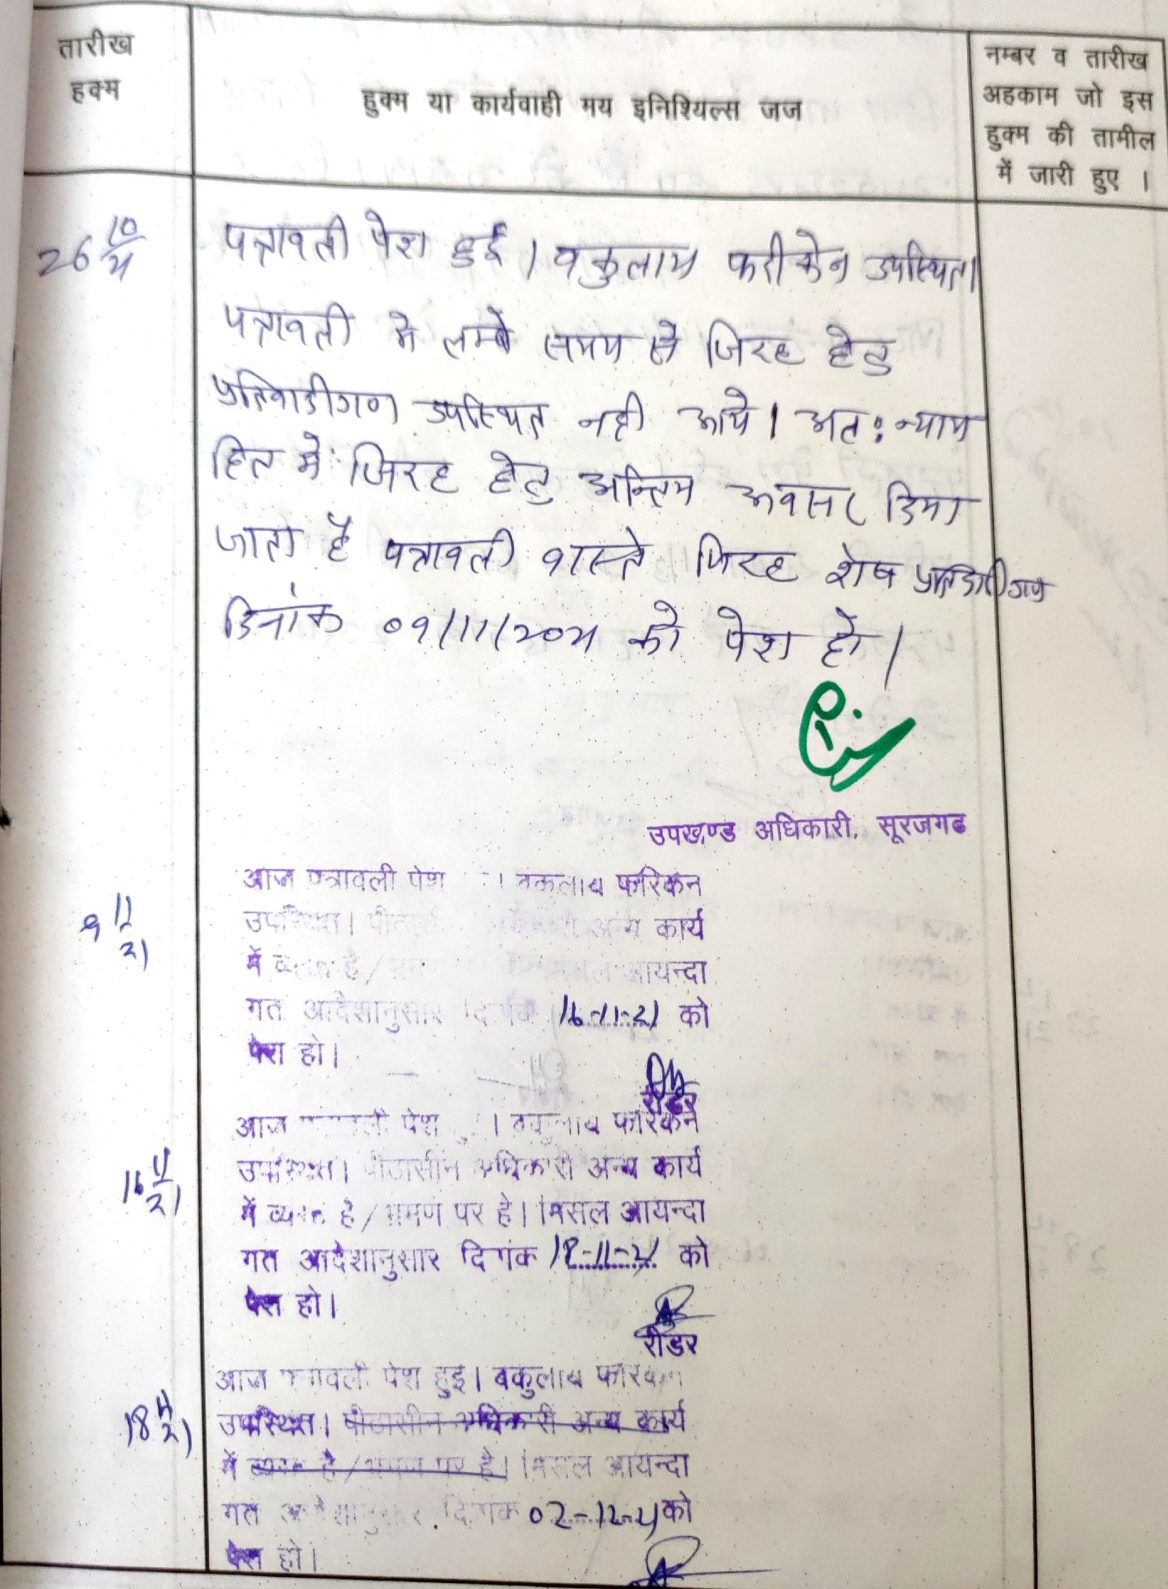 तारीख
हक्म
हुक्म या कार्यवाही मय इनिश्यिल्स जज
नम्बर व तारीख
अहकाम जो इस
हुक्म की तामील
में जारी हुए ।
26 10/21
पत्रावली पेश हुई । वकुलाय फरीकेन उपस्थित।
पत्रावली मे लम्बे समय से जिरह हेतु
प्रतिवादीगण उपस्थित नही आये । अतः न्याय
हित मे जिरह हेतु अन्तिम अवसर दिया
जाता है पत्रावली वास्ते जिरह शेष प्रतिवादीगण
दिनांक 09/11/2021 को पेश हो ।
उपखण्ड अधिकारी, सूरजगढ
9 11/21
आज पत्रावली पेश । वकुलाय फरिकन
उपस्थित। अन्य कार्य
में है / आयन्दा
गत आदेशानुसार 16-11-21 को
पेश हो।
रीडर
16 11/21
आज पेश । वकुलाय फरिकेन
उपस्थित। पीठासीन अधिकारी अन्य कार्य
में व्यस्त है / भ्रमण पर हे। मिसल आयन्दा
गत आदेशानुसार दिनांक 18-11-21 को
पेश हो।
रीडर
18 11/21
आज पत्रावली पेश हुइ। वकुलाय फरिकन
उपस्थित। पीठासीन अधिकारी अन्य कार्य
में व्यस्त है / भ्रमण पर है। मिसल आयन्दा
गत आदेशानुसार दिनांक 02-12-21 को
पेश हो।